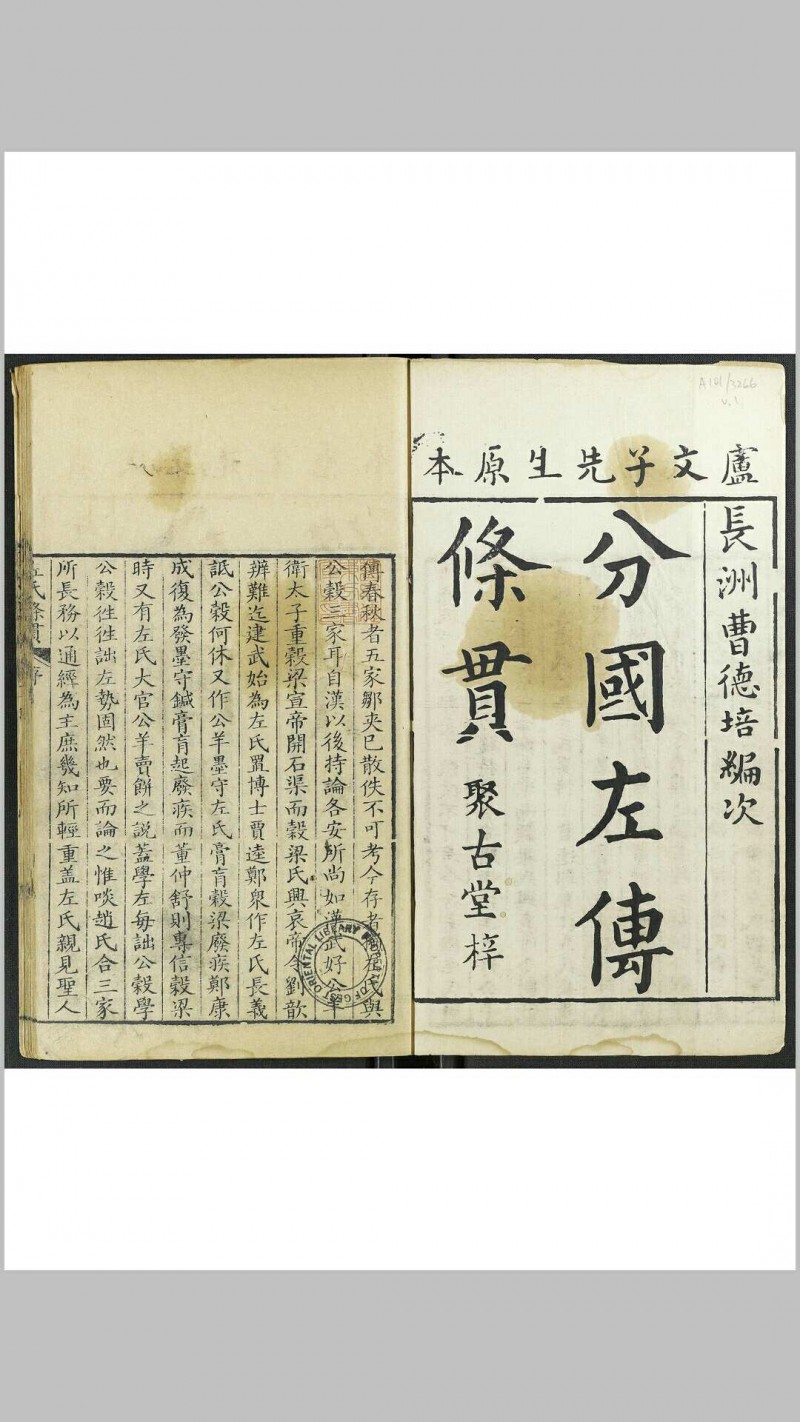 盧文子先生原本
長洲曹德培編次
分國左傳
條貫
聚古堂梓
A 101/3266
v.1
傳春秋者五家鄒夾已散佚不可考今存者獨左氏與
公穀三家耳自漢以後持論各安所尚如漢武好公羊
衛太子重穀梁宣帝開石渠而穀梁氏興哀帝令劉歆
辨難迄建武始為左氏置博士賈逵鄭衆作左氏長義
詆公穀何休又作公羊墨守左氏膏肓穀梁廢疾鄭康
成復為發墨守鍼膏肓起廢疾而董仲舒則專信穀梁
時又有左氏大官公羊賣餅之說蓋學左每詘公穀學
公穀徃徃詘左勢固然也要而論之惟啖趙氏合三家
所長務以通經為主庶幾知所輕重盖左氏親見聖人
左氏條貫 序
ORIENTAL LIBRARY